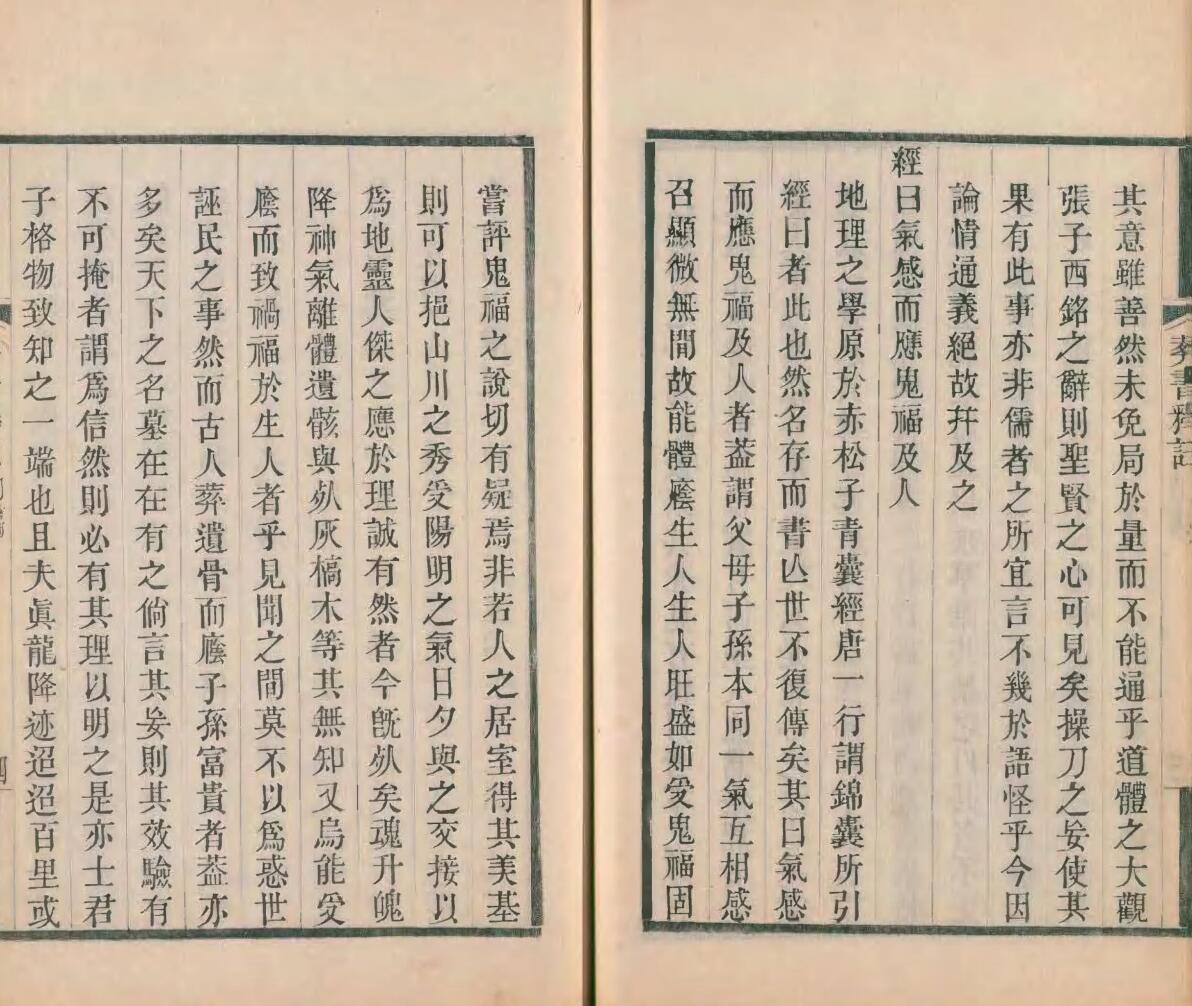 葬書釋註
其意雖善然未免局於量而不能通乎道體之大觀
張子西銘之辭則聖賢之心可見矣操刀之妄使其
果有此事亦非儒者之所宜言不幾於語怪乎今因
論情通義絕故幷及之
經曰氣感而應鬼福及人
地理之學原於赤松子青囊經唐一行謂錦囊所引
經曰者此也然名存而書亾世不復傳矣其曰氣感
而應鬼福及人者葢謂父母子孫本同一氣互相感
召顯微無間故能體廕生人生人旺盛如受鬼福固
嘗評鬼福之說切有疑焉非若人之居室得其美基
則可以挹山川之秀受陽明之氣日夕與之交接以
爲地靈人傑之應於理誠有然者今旣㱙矣魂升魄
降神氣離體遺骸與㱙灰槁木等其無知又烏能受
廕而致禍福於生人者乎見聞之間莫不以爲惑世
誣民之事然而古人葬遺骨而廕子孫富貴者葢亦
多矣天下之名墓在在有之倘言其妄則其效驗有
不可掩者謂爲信然則必有其理以明之是亦士君
子格物致知之一端也且夫眞龍降迹迢迢百里或